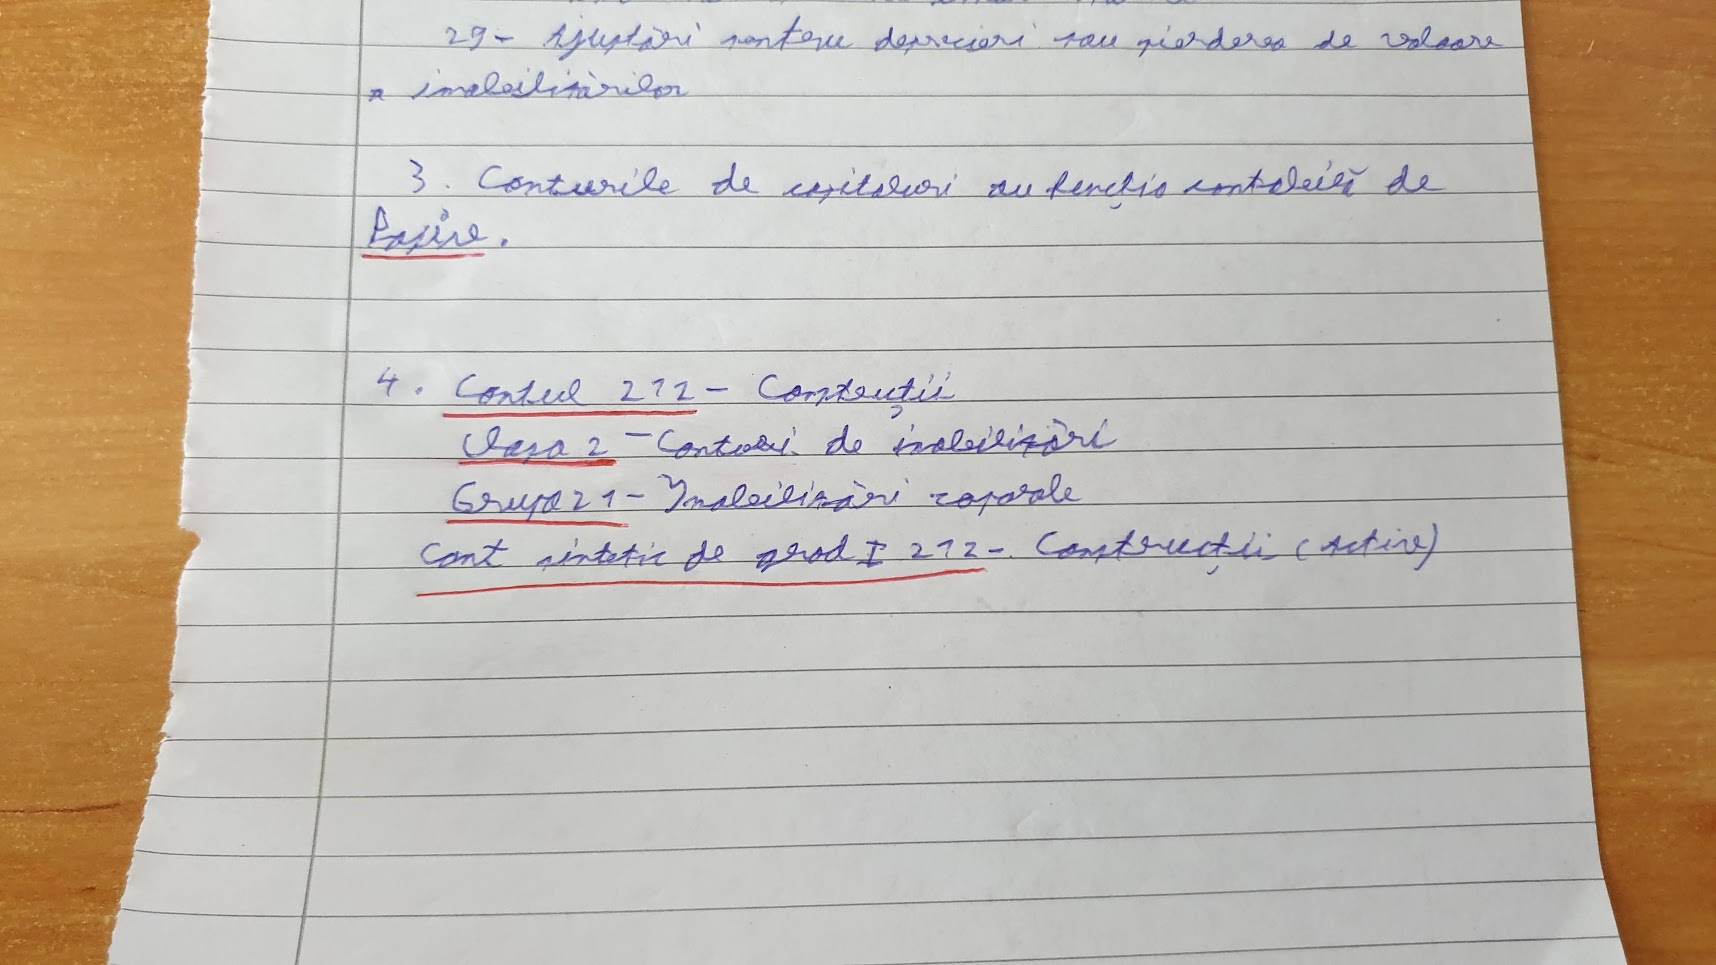 29 - Ajustări pentru deprecieri sau pierderea de valoare
a imobilizărilor
3. Conturile de capitaluri au funcția contabilă de
Pasive.
4. Contul 212 - Construcții
Clasa 2 - Conturi de imobilizări
Grupa 21 - Imobilizări corporale
Cont sintetic de grad I 212 - Construcții (Active)